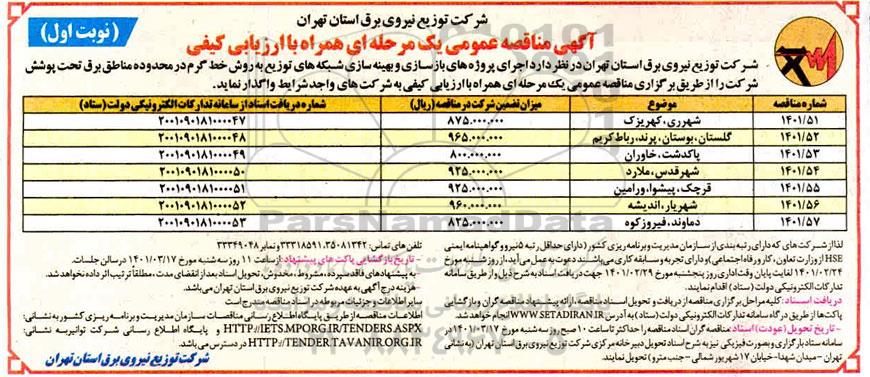 شرکت توزیع نیروی برق استان تهران
(نوبت اول)
آگهی مناقصه عمومی یک مرحله ای همراه با ارزیابی کیفی
شرکت توزیع نیروی برق استان تهران در نظر دارد اجرای پروژه های بازسازی و بهینه سازی شبکه های توزیع به روش خط گرم در محدوده مناطق برق تحت پوشش
شرکت را از طریق برگزاری مناقصه عمومی یک مرحله ای همراه با ارزیابی کیفی به شرکت های واجد شرایط واگذار نماید.
شماره مناقصه موضوع میزان تضمین شرکت در مناقصه (ریال) شماره دریافت اسناد از سامانه تدارکات الکترونیکی دولت (ستاد)
۱۴۰۱/۵۱ شهرری، کهریزک ۸۷۵.۰۰۰.۰۰۰ ۲۰۰۱۰۹۰۱۸۱۰۰۰۰۴۷
۱۴۰۱/۵۲ گلستان، بوستان، پرند، رباط کریم ۹۶۵.۰۰۰.۰۰۰ ۲۰۰۱۰۹۰۱۸۱۰۰۰۰۴۸
۱۴۰۱/۵۳ پاکدشت، خاوران ۸۰۰.۰۰۰.۰۰۰ ۲۰۰۱۰۹۰۱۸۱۰۰۰۰۴۹
۱۴۰۱/۵۴ شهرقدس، ملارد ۹۲۵.۰۰۰.۰۰۰ ۲۰۰۱۰۹۰۱۸۱۰۰۰۰۵۰
۱۴۰۱/۵۵ قرچک، پیشوا، ورامین ۹۲۵.۰۰۰.۰۰۰ ۲۰۰۱۰۹۰۱۸۱۰۰۰۰۵۱
۱۴۰۱/۵۶ شهریار، اندیشه ۹۶۰.۰۰۰.۰۰۰ ۲۰۰۱۰۹۰۱۸۱۰۰۰۰۵۲
۱۴۰۱/۵۷ دماوند، فیروزکوه ۸۲۵.۰۰۰.۰۰۰ ۲۰۰۱۰۹۰۱۸۱۰۰۰۰۵۳
لذا از شرکت های که دارای رتبه بندی از سازمان مدیریت و برنامه ریزی کشور (دارای حداقل رتبه ۵ نیرو و گواهینامه ایمنی
HSE از وزارت تعاون، کار و رفاه اجتماعی) و دارای تجربه و سابقه کاری می باشند دعوت به عمل می آید، از روز شنبه مورخ
۱۴۰۱/۰۲/۲۴ لغایت پایان وقت اداری روز پنجشنبه مورخ ۱۴۰۱/۰۲/۲۹ جهت دریافت اسناد به شرح ذیل از طریق سامانه
تدارکات الکترونیکی دولت (ستاد) اقدام نمایند.
دریافت اسناد: کلیه مراحل برگزاری مناقصه از دریافت و تحویل اسناد مناقصه، ارائه پیشنهاد مناقصه گران و بازگشایی
پاکت ها از طریق درگاه سامانه تدارکات الکترونیکی دولت (ستاد) به آدرس WWW.SETADIRAN.IR انجام خواهد شد.
- تاریخ تحویل (عودت) اسناد: مناقصه گران اسناد مناقصه را حداکثر تا ساعت ۱۰ صبح روز سه شنبه مورخ ۱۴۰۱/۰۳/۱۷ در
سامانه ستاد بارگزاری و بصورت فیزیکی نیز به شرح اسناد تحویل دبیرخانه مرکزی شرکت توزیع نیروی برق استان تهران (به نشانی
تهران - میدان شهدا - خیابان ۱۷ شهریور شمالی - جنب مترو) تحویل نمایند.
تلفن های تماس: ۳۵۰۸۱۳۴۲، ۳۳۳۱۸۵۹۱ و نمابر ۳۳۳۴۹۰۴۸
- تاریخ بازگشایی پاکت های پیشنهاد: از ساعت ۱۱ روز سه شنبه مورخ ۱۴۰۱/۰۳/۱۷ در سالن جلسات.
- به پیشنهادهای فاقد سپرده، مشروط، مخدوش، تحویل اسناد بعد از انقضای مدت، مطلقاً ترتیب اثر داده نخواهد شد.
- هزینه درج آگهی به عهده شرکت توزیع نیروی برق استان تهران می باشد.
سایر اطلاعات و جزئیات مربوطه در اسناد مناقصه مندرج است
- متن آگهی مناقصه از طریق پایگاه اطلاع رسانی مناقصات سازمان مدیریت و برنامه ریزی کشور به نشانی:
HTTP://IETS.MPORG.IR/TENDERS.ASPX و پایگاه اطلاع رسانی شرکت توانیر به نشانی:
HTTP://TENDER.TAVANIR.ORG.IR در دسترس می باشد.
شرکت توزیع نیروی برق استان تهران
ParsNamadData